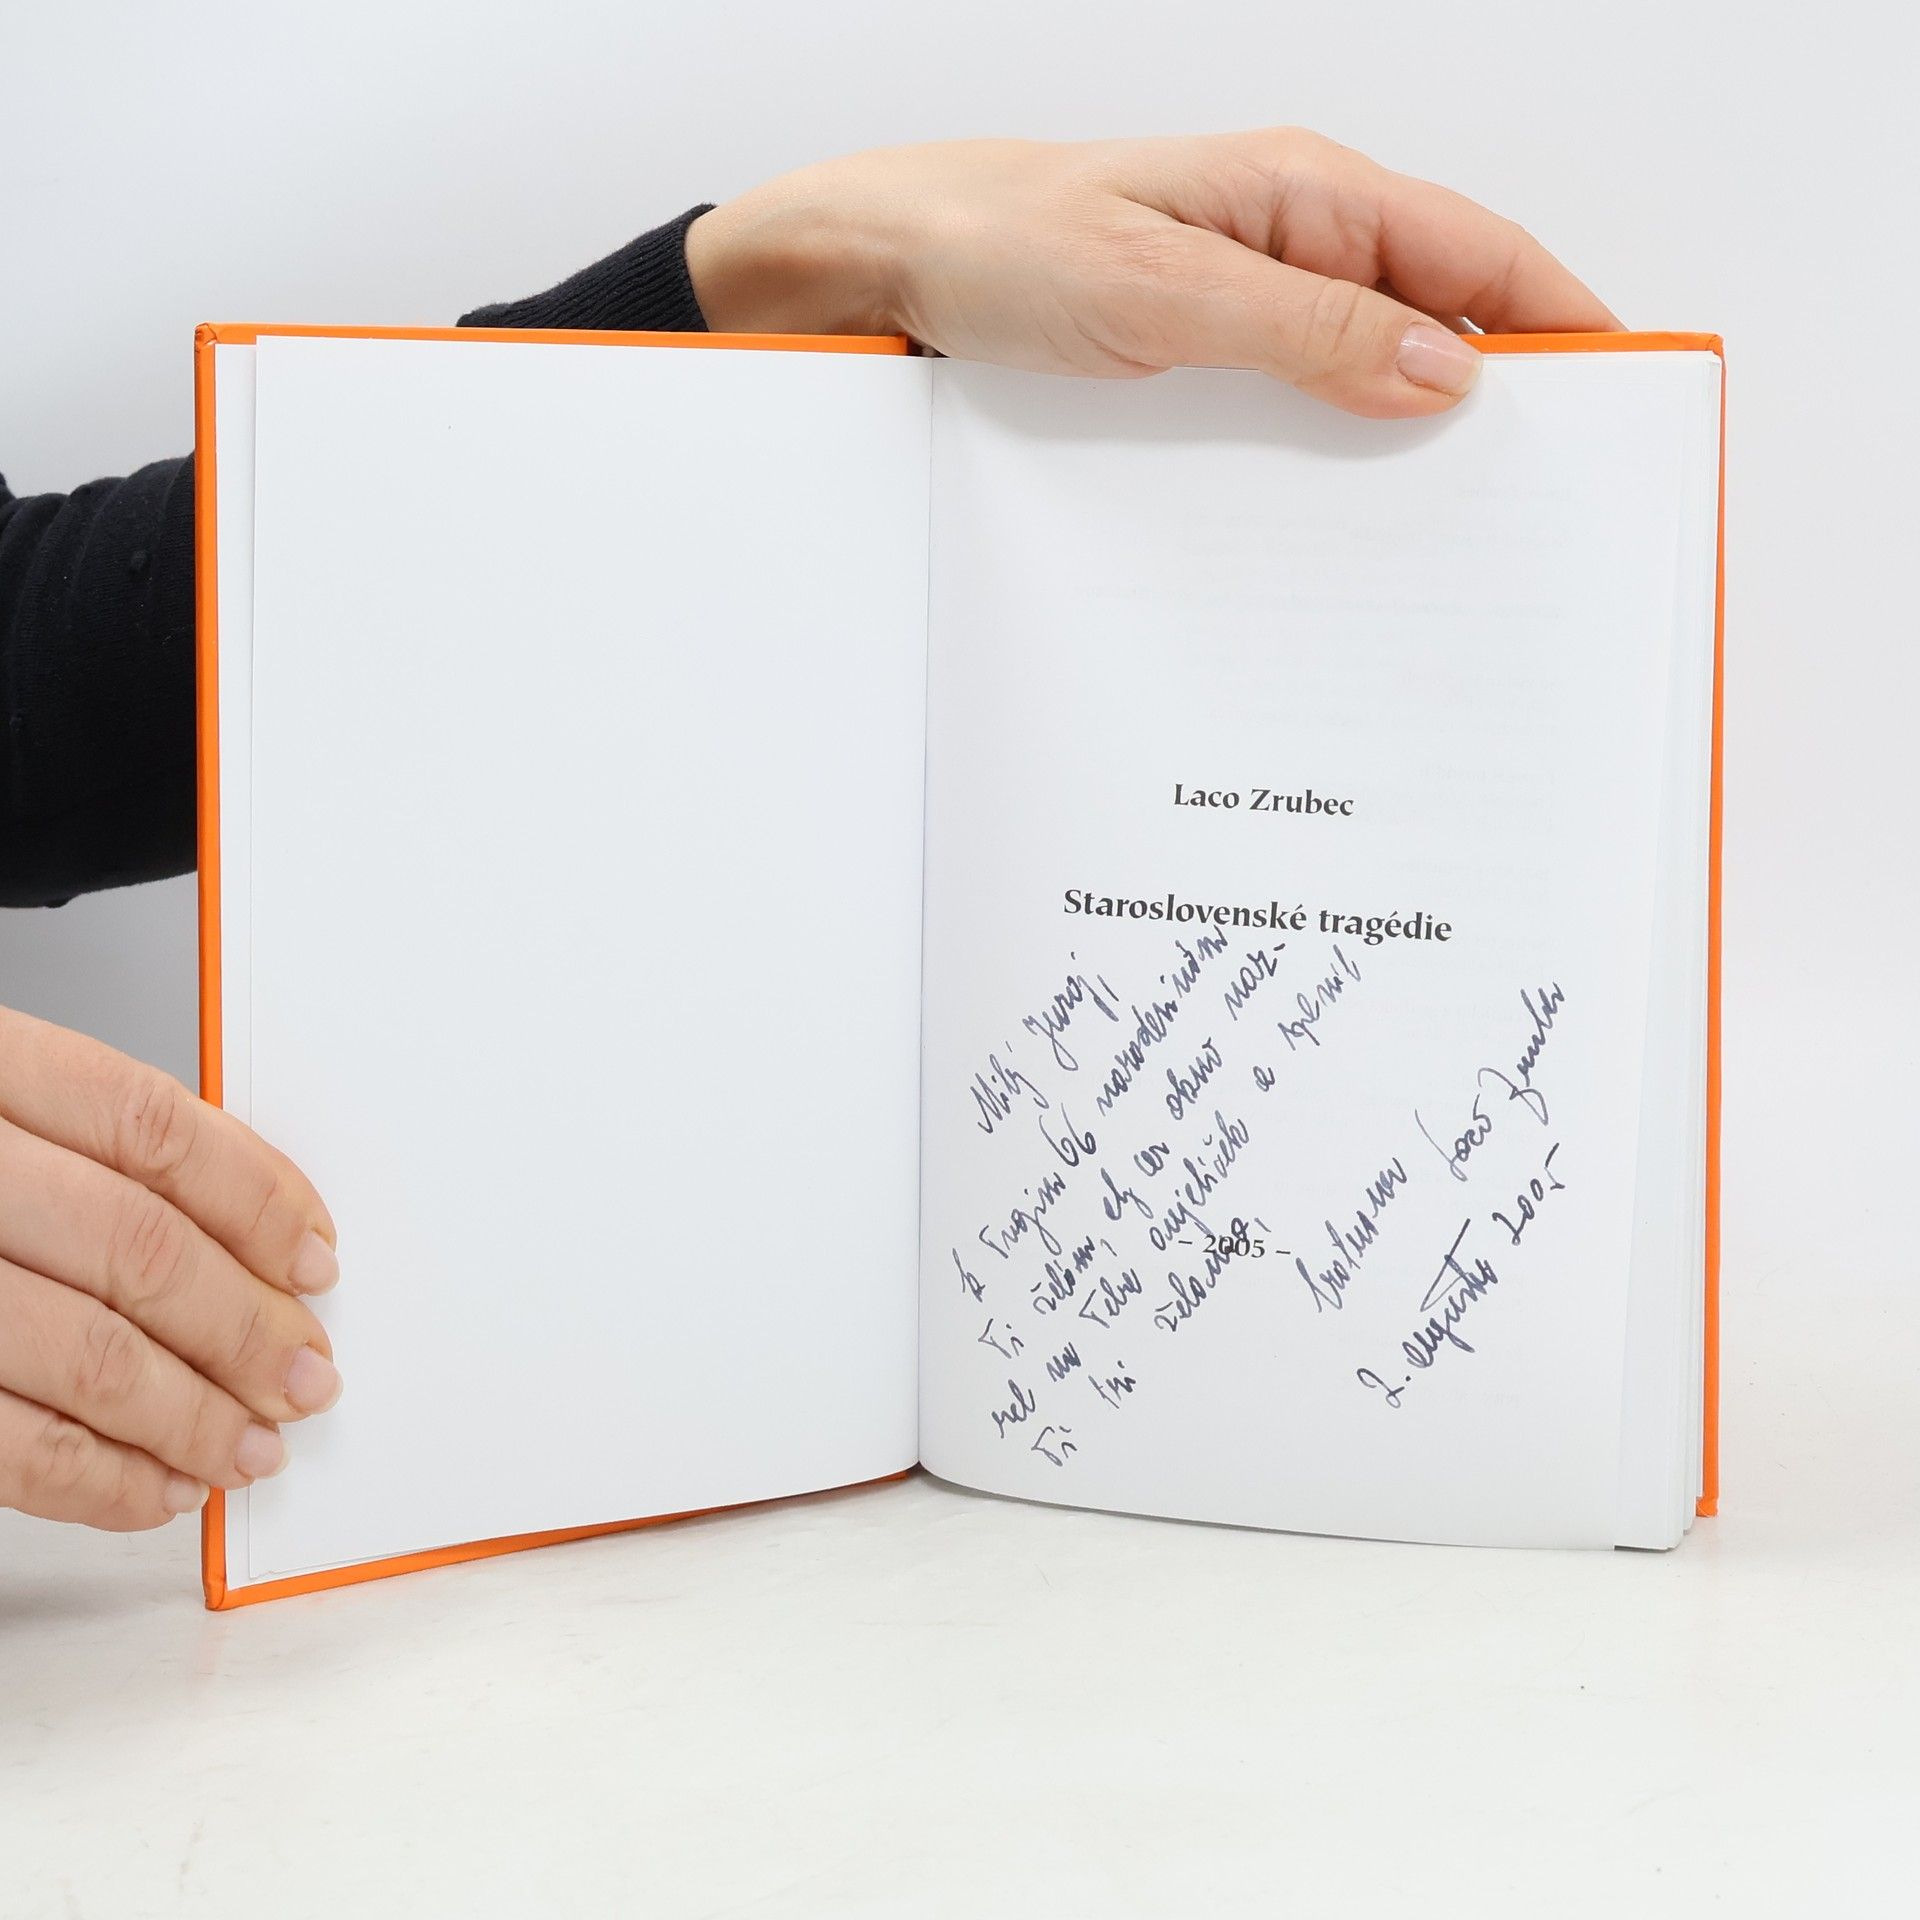 Laco Zrubec
Staroslovenské tragédie
Milý Juraj,
k Tvojim 66 narodeninám
Ti želám, aby cez okno naz-
rel na Teba anjeličik a splnil
Ti tri želania,
Laco Zrubec
2. augusta 2005
– 2005 –